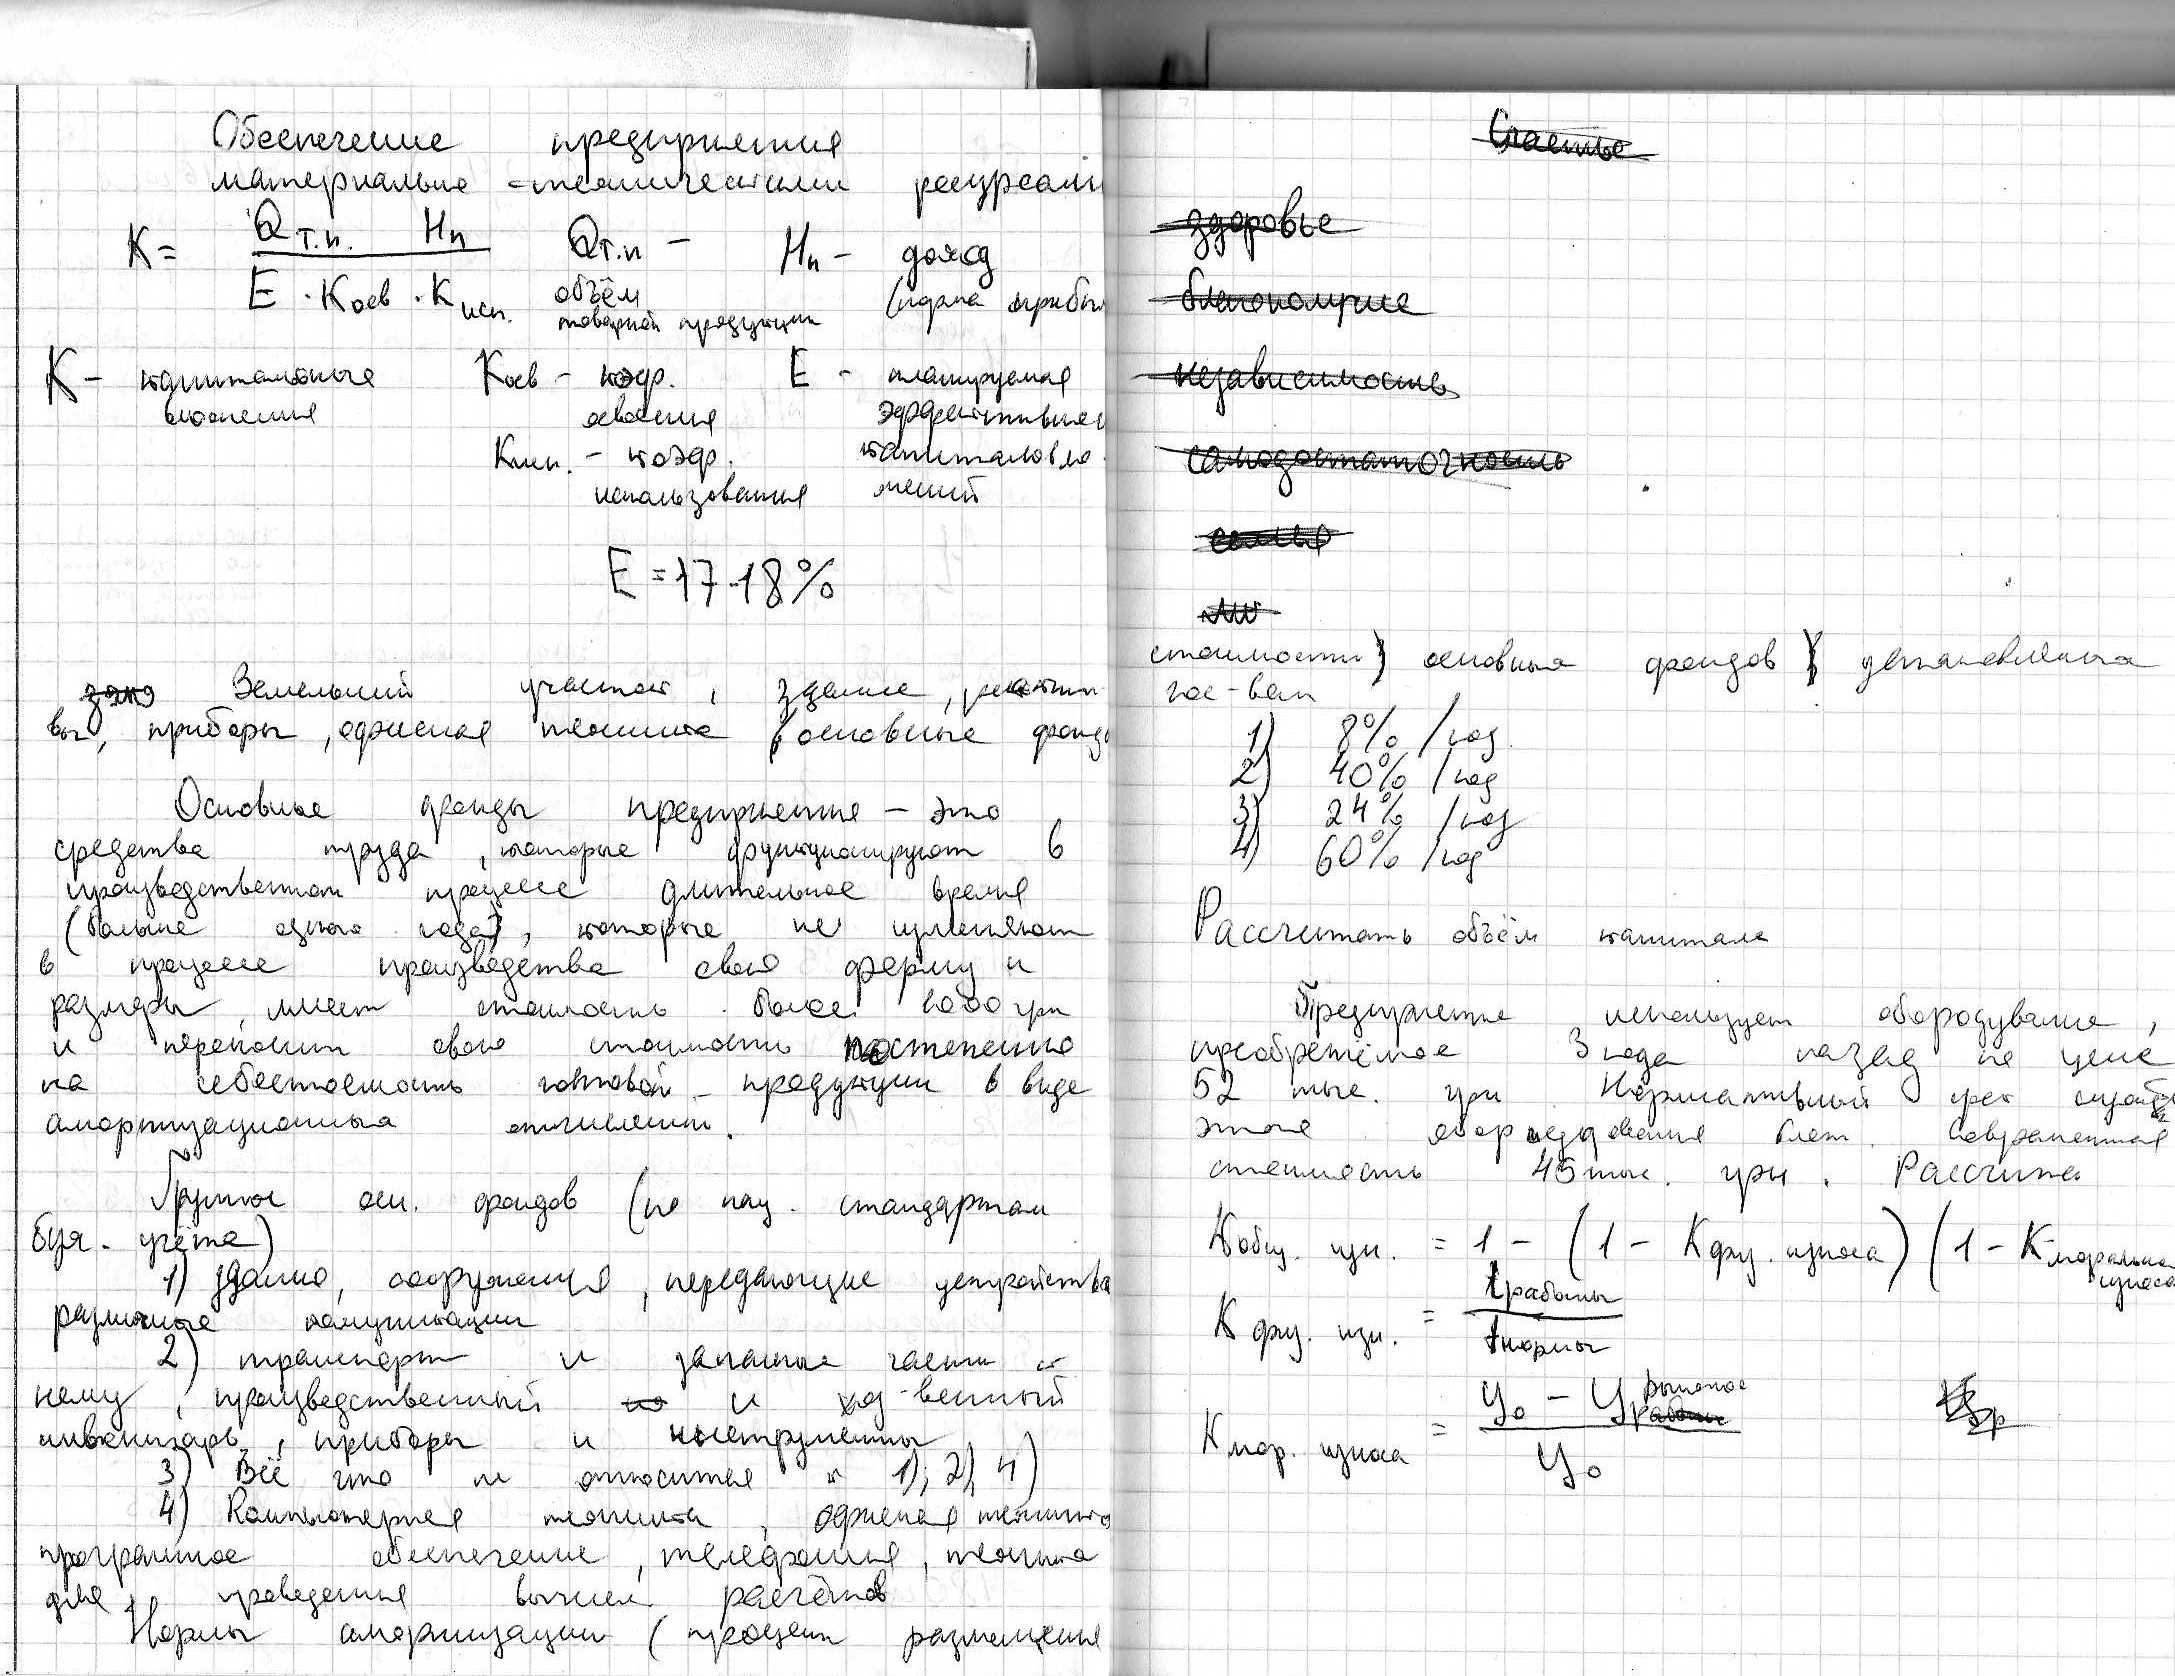 Обеспечение предприятия
материально-техническими ресурсами
К = Qт.п. Нп / Е · Коев · Кисп.
Qт.п – объём товарной продукции
Нп – доход (норма прибы
К – капитальные вложения
Коев – коэф. освоения
Е – планируемая эффективнос капиталовло- жений
Кисп. – коэф. использования
Е = 17-18%
Земельный участок, здание,
вы, приборы, офисная техника (основные фонды
Основные фонды предприятия – это
средства труда, которые функционируют в
производственном процессе длительное время
(больше одного года), которые не изменяют
в процессе производства свою форму и
размеры, имеет стоимость более 1000 грн
и переносит свою стоимость постепенно
на себестоимость готовой продукции в виде
амортизационных отчислений.
Группы осн. фондов (по нац. стандартам
бух. учёта)
1) здания, сооружения, передающие устройства
различные коммуникации
2) транспорт и запасные части к
нему, производственный и хоз-венный
инвентарь, приборы и инструменты
3) Всё что не относится к 1); 2), 4)
4) Компьютерная техника, офисная техника
программное обеспечение, телефония, техника
для проведения вычисл. расчётов
Нормы амортизации (процент размещения
Счастье
здоровье
благополучие
независимость
самодостаточность
семья
стоимости) основных фондов установлена
гос-вом
1) 8% /год.
2) 40% /год
3) 24% /год
4) 60% /год
Рассчитать объём капитала
Предприятие использует оборудование,
приобретёмое 3 года назад по цене
52 тыс. грн. Нормативный срок службы
этого оборудования 8лет. Современная
стоимость 45тыс. грн. Рассчита
Кобщ. изн. = 1 – (1 – Кфу. износа) (1 – Кморальна износа
Кфу. изн. = tработы / tнормы
Кмор. износа = Цо – Црыночное / Цо